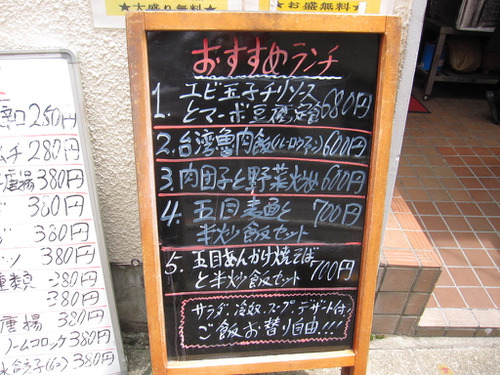 ★大盛り無料★
★お盛無料★
おすすめランチ
1. エビ玉子チリソース
とマーボ豆腐定食 680円
2. 台湾魯肉飯(ルーロウファン) 600円
3. 肉団子と野菜炒め 600円
4. 五目麦面と 700円
半炒飯セット
5. 五目あんかけ焼そば
と半炒飯セット 700円
サラダ、冷奴、スープ、デザート付
ご飯お替り自由!!!
250円
ムチ 280円
唐揚 380円
380円
380円
ツ 380円
種類 380円
380円
唐揚 380円
ームコロッケ 380円
水餃子(6コ) 380円